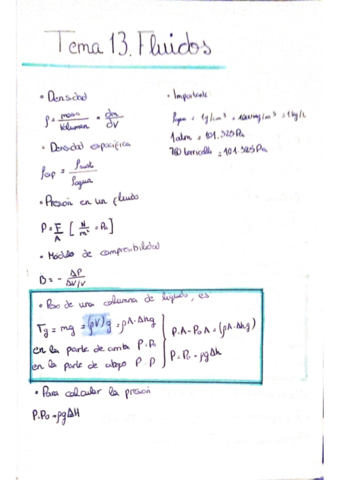 Tema 13. Fluidos
• Densidad
ρ = masa/Volumen = dm/dV
• Densidad específica
ρesp = ρsust/ρagua
• Presión en un fluido
P = F/A [N/m² = Pa]
• Módulo de compresibilidad
B = - ΔP/ΔV/V
• Importante
ρagua = 1g/cm³ = 1000 kg/m³ = 1kg/L
1atm = 101.325Pa
760 torricelli = 101.325Pa
• Peso de una columna de líquido, es
Tg = mg = (ρV)g = ρA·Δhg
en la parte de arriba P·P₀
en la parte de abajo P·P
P·A - P₀A = (ρA·Δhg)
P - P₀ = ρgΔh
• Para calcular la presión
P·P₀ = ρgΔH